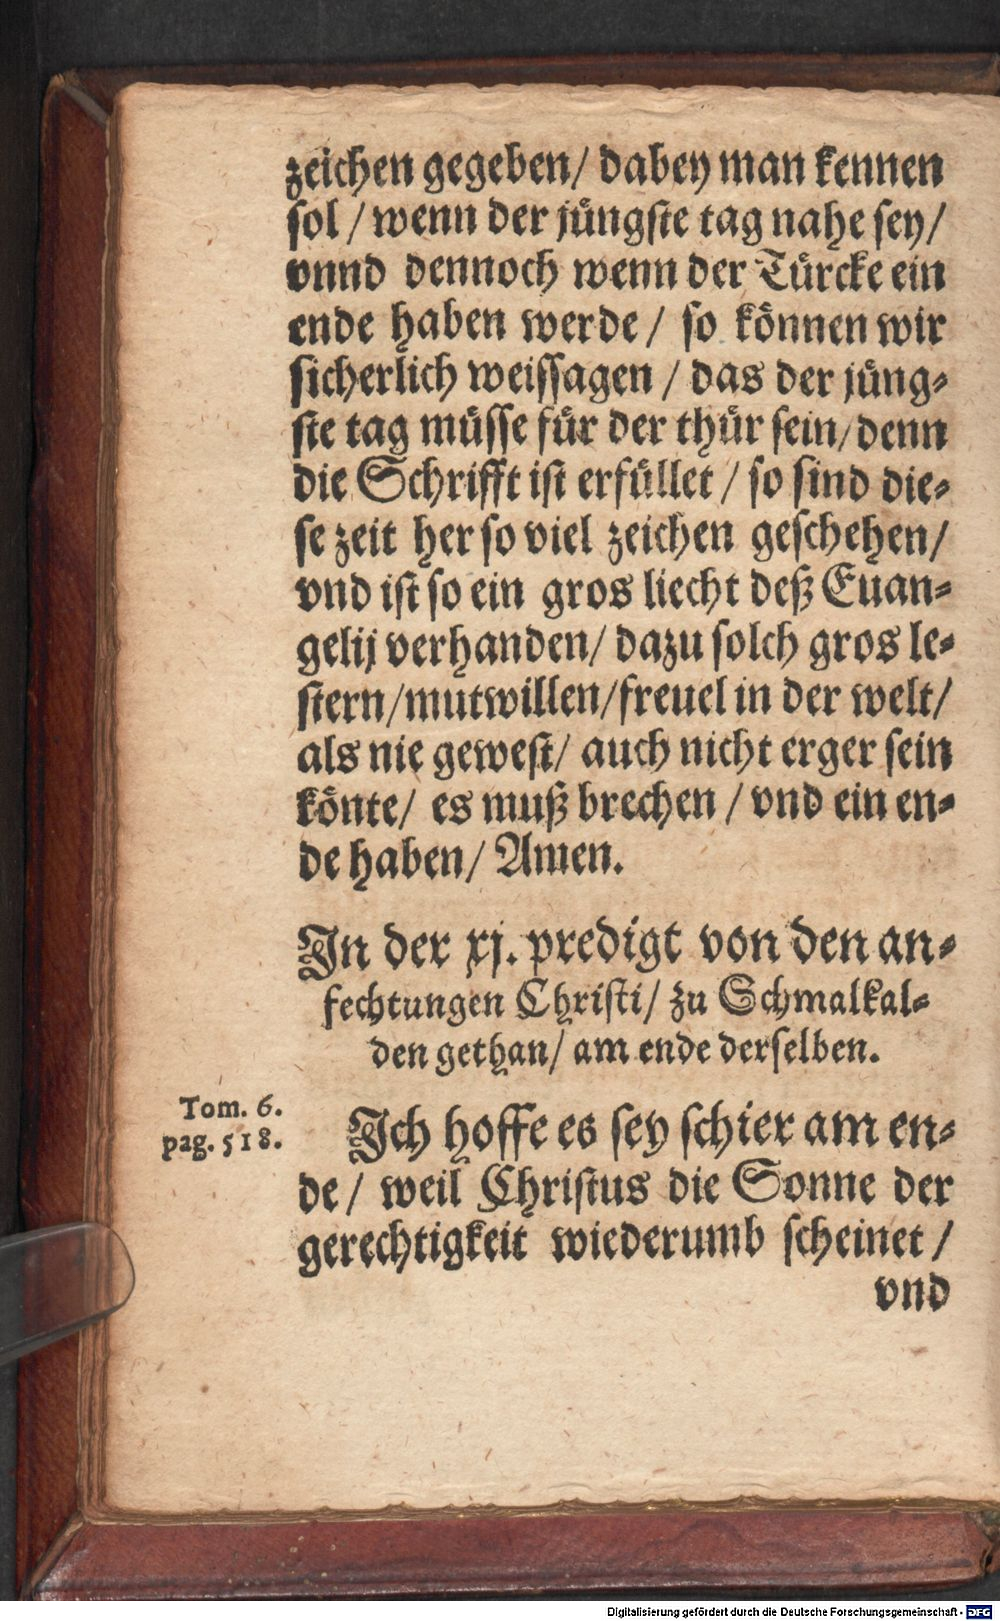 zeichen gegeben/ dabey man kennen
sol / wenn der jüngste tag nahe sey/
vnnd dennoch wenn der Türcke ein
ende haben werde / so können wir
sicherlich weissagen / das der jüng-
ste tag müsse für der thür sein/ denn
die Schrifft ist erfüllet / so sind die-
se zeit her so viel zeichen geschehen/
vnd ist so ein gros liecht deß Euan-
gelij verhanden/ dazu solch gros le-
stern/mutwillen/freuel in der welt/
als nie gewest/ auch nicht erger sein
könte/ es muß brechen / vnd ein en-
de haben/ Amen.
In der xj. predigt von den an-
fechtungen Christi/ zu Schmalkal-
den gethan/ am ende derselben.
Tom. 6.
pag. 518.
Ich hoffe es sey schier am en-
de / weil Christus die Sonne der
gerechtigkeit wiederumb scheinet /
vnd
Digitalisierung gefördert durch die Deutsche Forschungsgemeinschaft - DFG